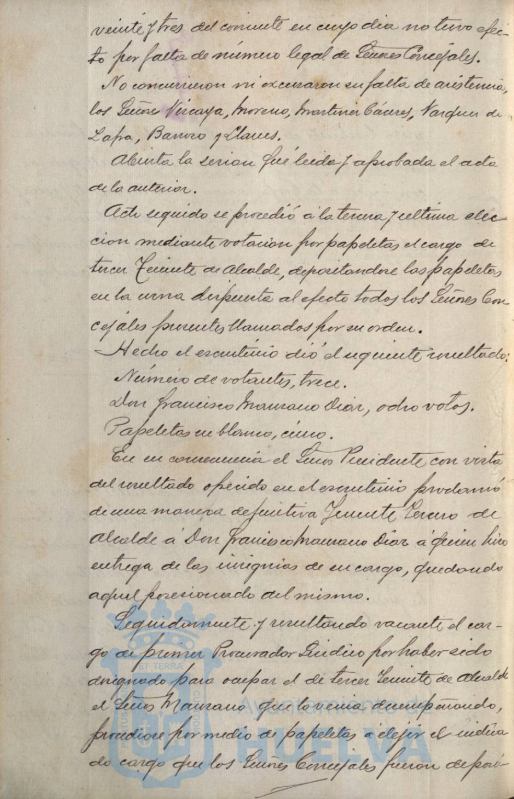 veinte y tres del corriente en cuyo dia no tuvo efec-
to por falta de número legal de Señores Concejales.
No concurrieron ni excusaron su falta de asistencia,
los Señores Vizcaya, Moreno, Martinez Cáceres, Vazquez de
Zafra, Barroso y Claves.
Abierta la sesion fué leida y aprobada el acta
de la anterior.
Acto seguido se procedió á la tercera y última elec-
cion mediante votacion por papeletas el cargo de
tercer Teniente de Alcalde, depositandose las papeletas
en la urna dispuesta al efecto todos los Señores Con-
cejales presentes llamados por su orden.
Hecho el escrutinio dió el siguiente resultado:
Número de votantes, trece.
Don Francisco Manzano Diaz, ocho votos.
Papeletas en blanco, cinco.
En su consecuencia el Señor Presidente con vista
del resultado ofrecido en el escrutinio proclamó
de una manera definitiva Teniente Tercero de
Alcalde á Don Francisco Manzano Diaz á quien hizo
entrega de las insignias de su cargo, quedando
aquel posesionado del mismo.
Seguidamente y resultando vacante el car-
go de primer Procurador Sindico por haber sido
designado para ocupar el de tercer Teniente de Alcalde
el Señor Manzano que lo venia desempeñando,
procediose por medio de papeletas á elejir el indica-
do cargo que los Señores Concejales fueron deposi-
PORTUS MARIS
ET TERRÆ
CUSTODIA
Ayuntamiento de
HUELVA